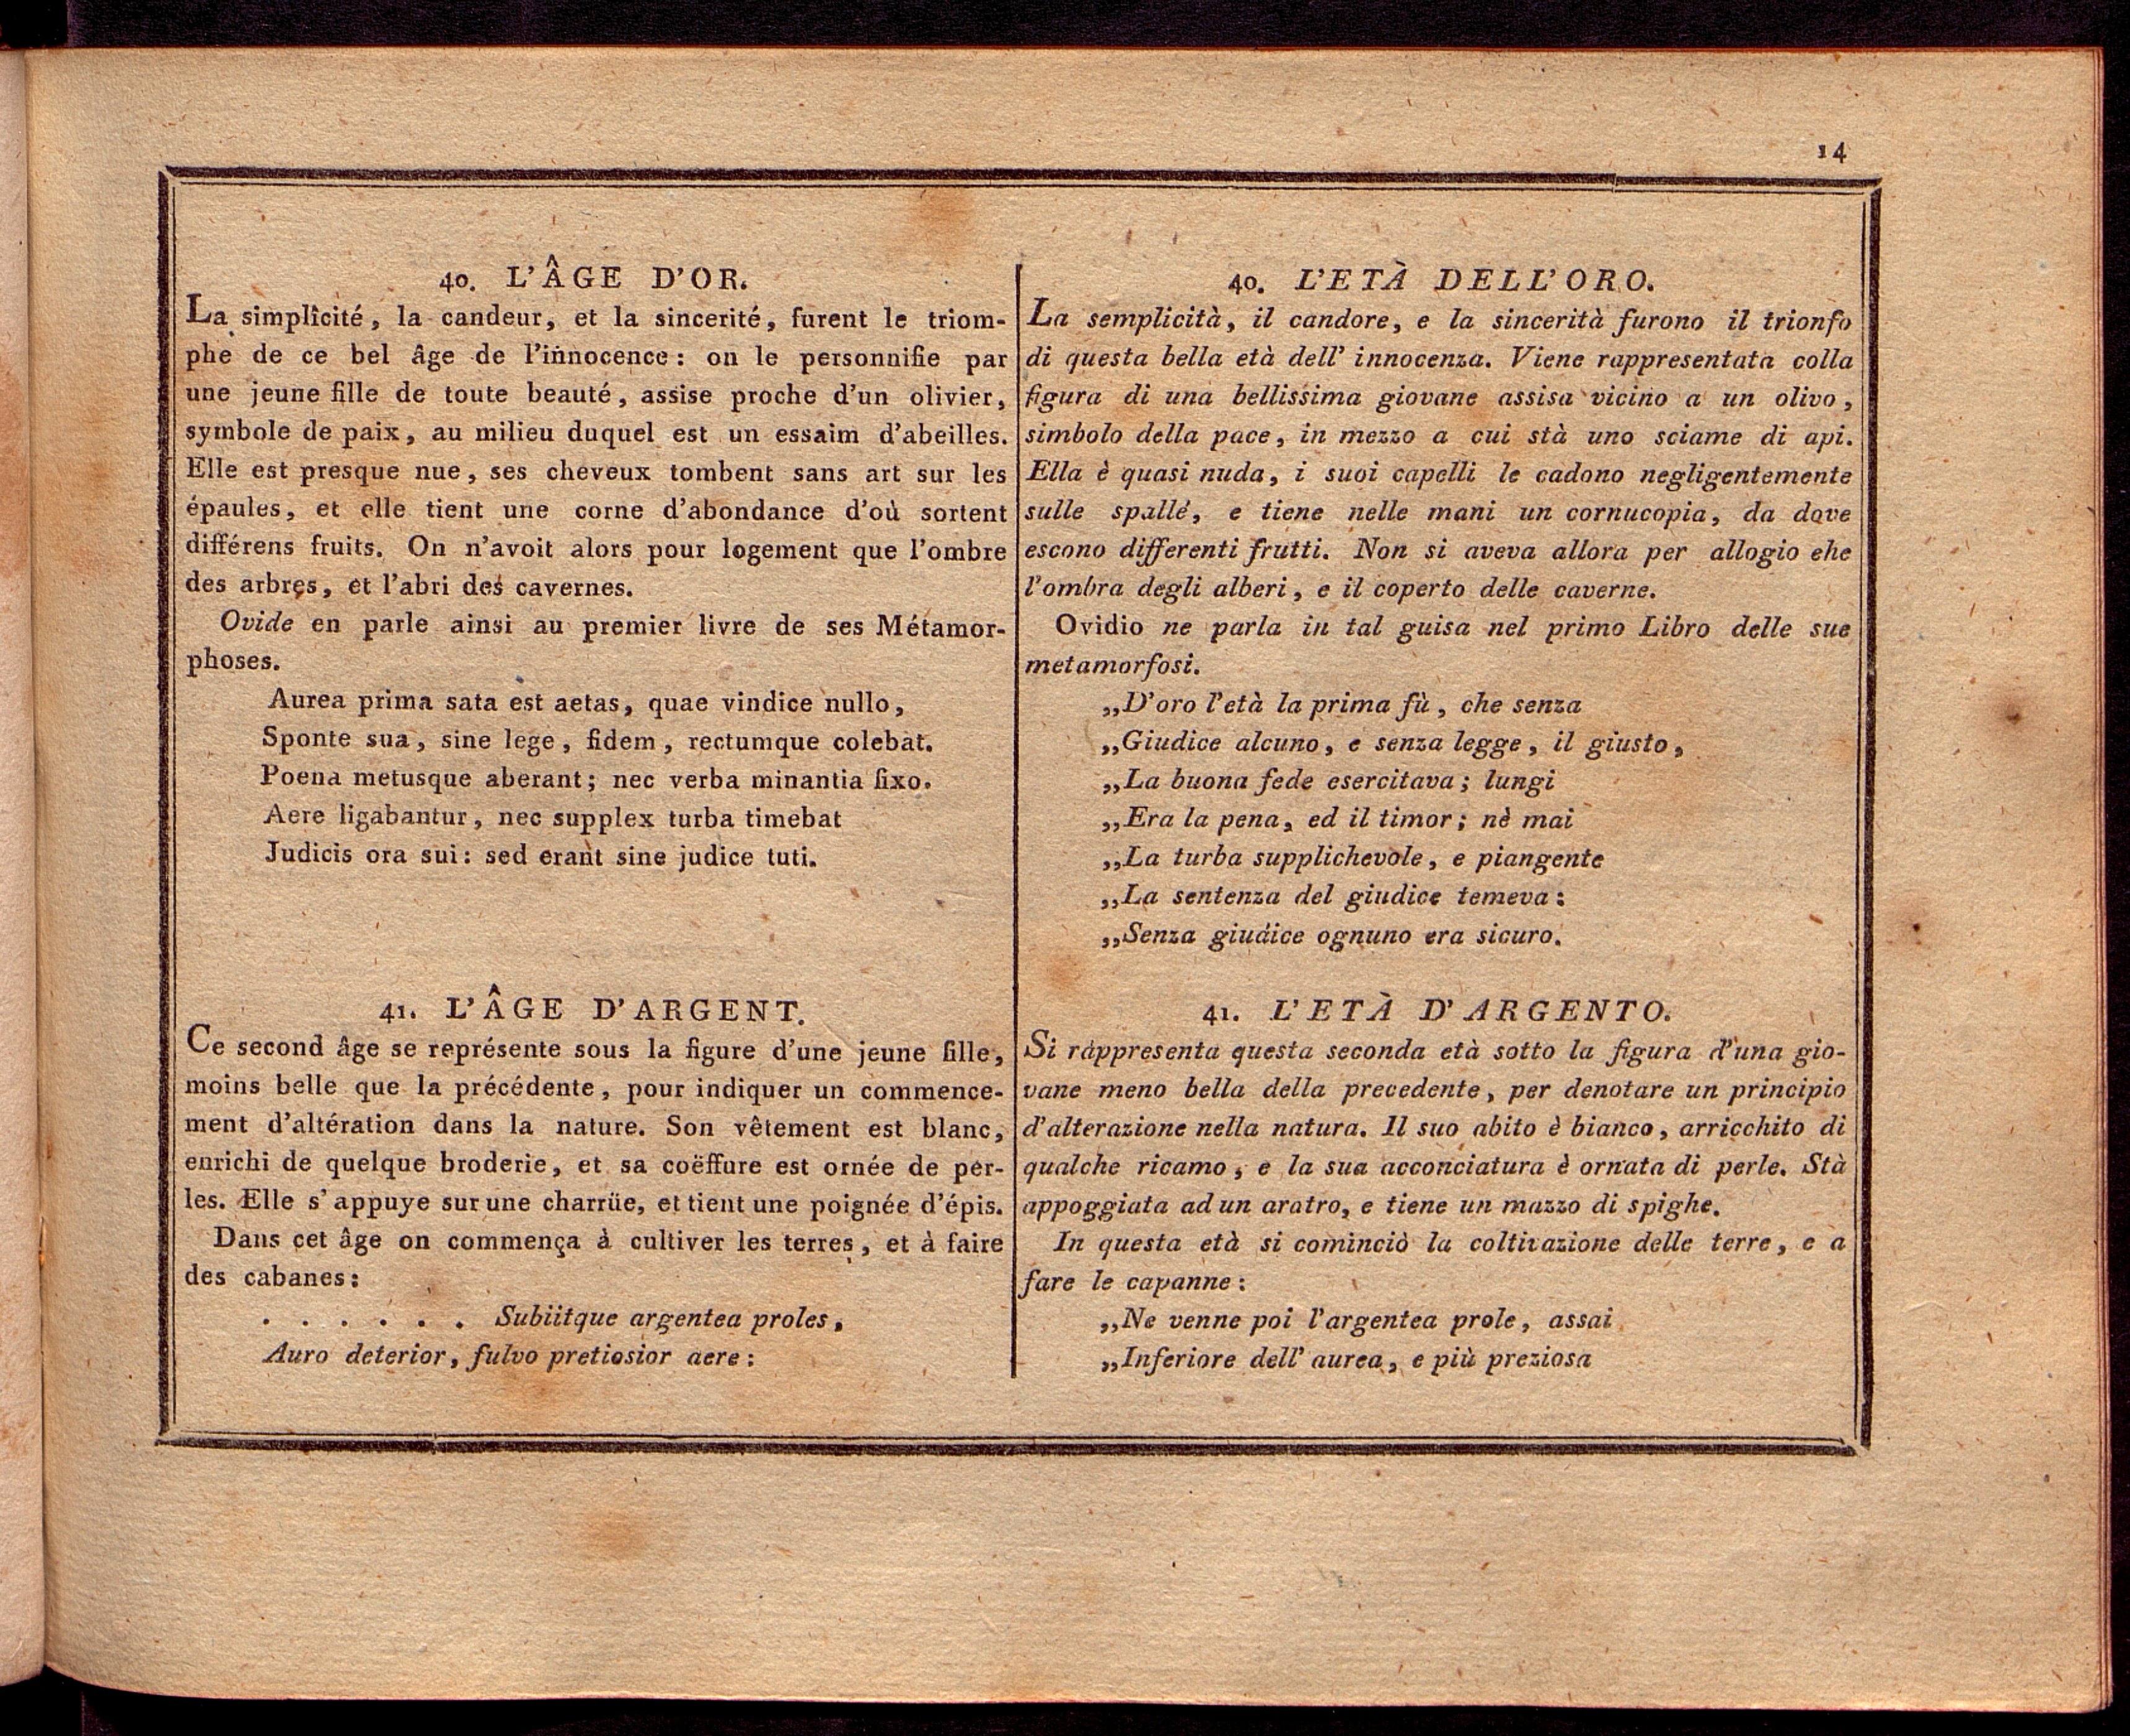 14
40. L'ÂGE D'OR.
La simplîcité, la candeur, et la sincerité, furent le triom-
phe de ce bel âge de l'innocence: on le personnifie par
une jeune fille de toute beauté, assise proche d'un olivier,
symbole de paix, au milieu duquel est un essaim d'abeilles.
Elle est presque nue, ses cheveux tombent sans art sur les
épaules, et elle tient une corne d'abondance d'où sortent
différens fruits. On n'avoit alors pour logement que l'ombre
des arbres, et l'abri des cavernes.
Ovide en parle ainsi au premier livre de ses Métamor-
phoses.
Aurea prima sata est aetas, quae vindice nullo,
Sponte sua, sine lege, fidem, rectumque colebat.
Poena metusque aberant; nec verba minantia fixo.
Aere ligabantur, nec supplex turba timebat
Judicis ora sui: sed erant sine judice tuti.
41. L'ÂGE D'ARGENT.
Ce second âge se représente sous la figure d'une jeune fille,
moins belle que la précédente, pour indiquer un commence-
ment d'altération dans la nature. Son vêtement est blanc,
enrichi de quelque broderie, et sa coëffure est ornée de per-
les. Elle s'appuye sur une charrüe, et tient une poignée d'épis.
Dans cet âge on commença à cultiver les terres, et à faire
des cabanes:
. . . . . . Subiitque argentea proles,
Auro deterior, fulvo pretiosior aere:
40. L'ETÀ DELL'ORO.
La semplicità, il candore, e la sincerità furono il trionfo
di questa bella età dell' innocenza. Viene rappresentata colla
figura di una bellissima giovane assisa vicino a un olivo,
simbolo della pace, in mezzo a cui stà uno sciame di api.
Ella è quasi nuda, i suoi capelli le cadono negligentemente
sulle spalle, e tiene nelle mani un cornucopia, da dove
escono differenti frutti. Non si aveva allora per allogio ehe
l'ombra degli alberi, e il coperto delle caverne.
Ovidio ne parla in tal guisa nel primo Libro delle sue
metamorfosi.
„D'oro l'età la prima fù, che senza
„Giudice alcuno, e senza legge, il giusto,
„La buona fede esercitava; lungi
„Era la pena, ed il timor; nè mai
„La turba supplichevole, e piangente
„La sentenza del giudice temeva:
„Senza giudice ognuno era sicuro.
41. L'ETÀ D'ARGENTO.
Si rappresenta questa seconda età sotto la figura d'una gio-
vane meno bella della precedente, per denotare un principio
d'alterazione nella natura. Il suo abito è bianco, arricchito di
qualche ricamo, e la sua acconciatura è ornata di perle. Stà
appoggiata ad un aratro, e tiene un mazzo di spighe.
In questa età si cominciò la coltivazione delle terre, e a
fare le capanne:
„Ne venne poi l'argentea prole, assai
„Inferiore dell' aurea, e più preziosa